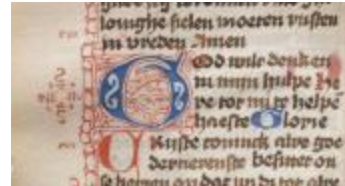 louighe sielen moeten rusten
in vreden Amen
God wilt denken
in mijn hulpe He
re tot mi te helpe
haeste Glorie
CRiste coninck alre goe
dertierenste besittet on
se herten dat wi di tot alre